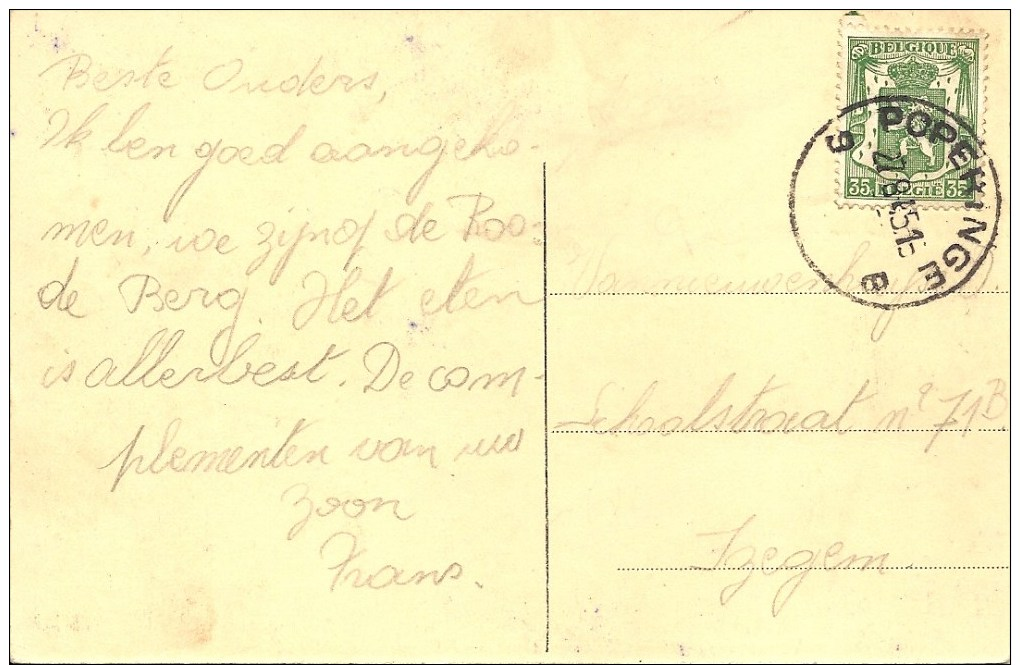 Beste Ouders,
Ik ben goed aangeko-
men, we zijn op de Roo-
de Berg. Het eten
is allerbest. De com-
plementen van uw
zoon
Frans.
BELGIQUE
35 BELGIË 35
POPERINGE
9 B
Schoolstraat nº 71B
Izegem